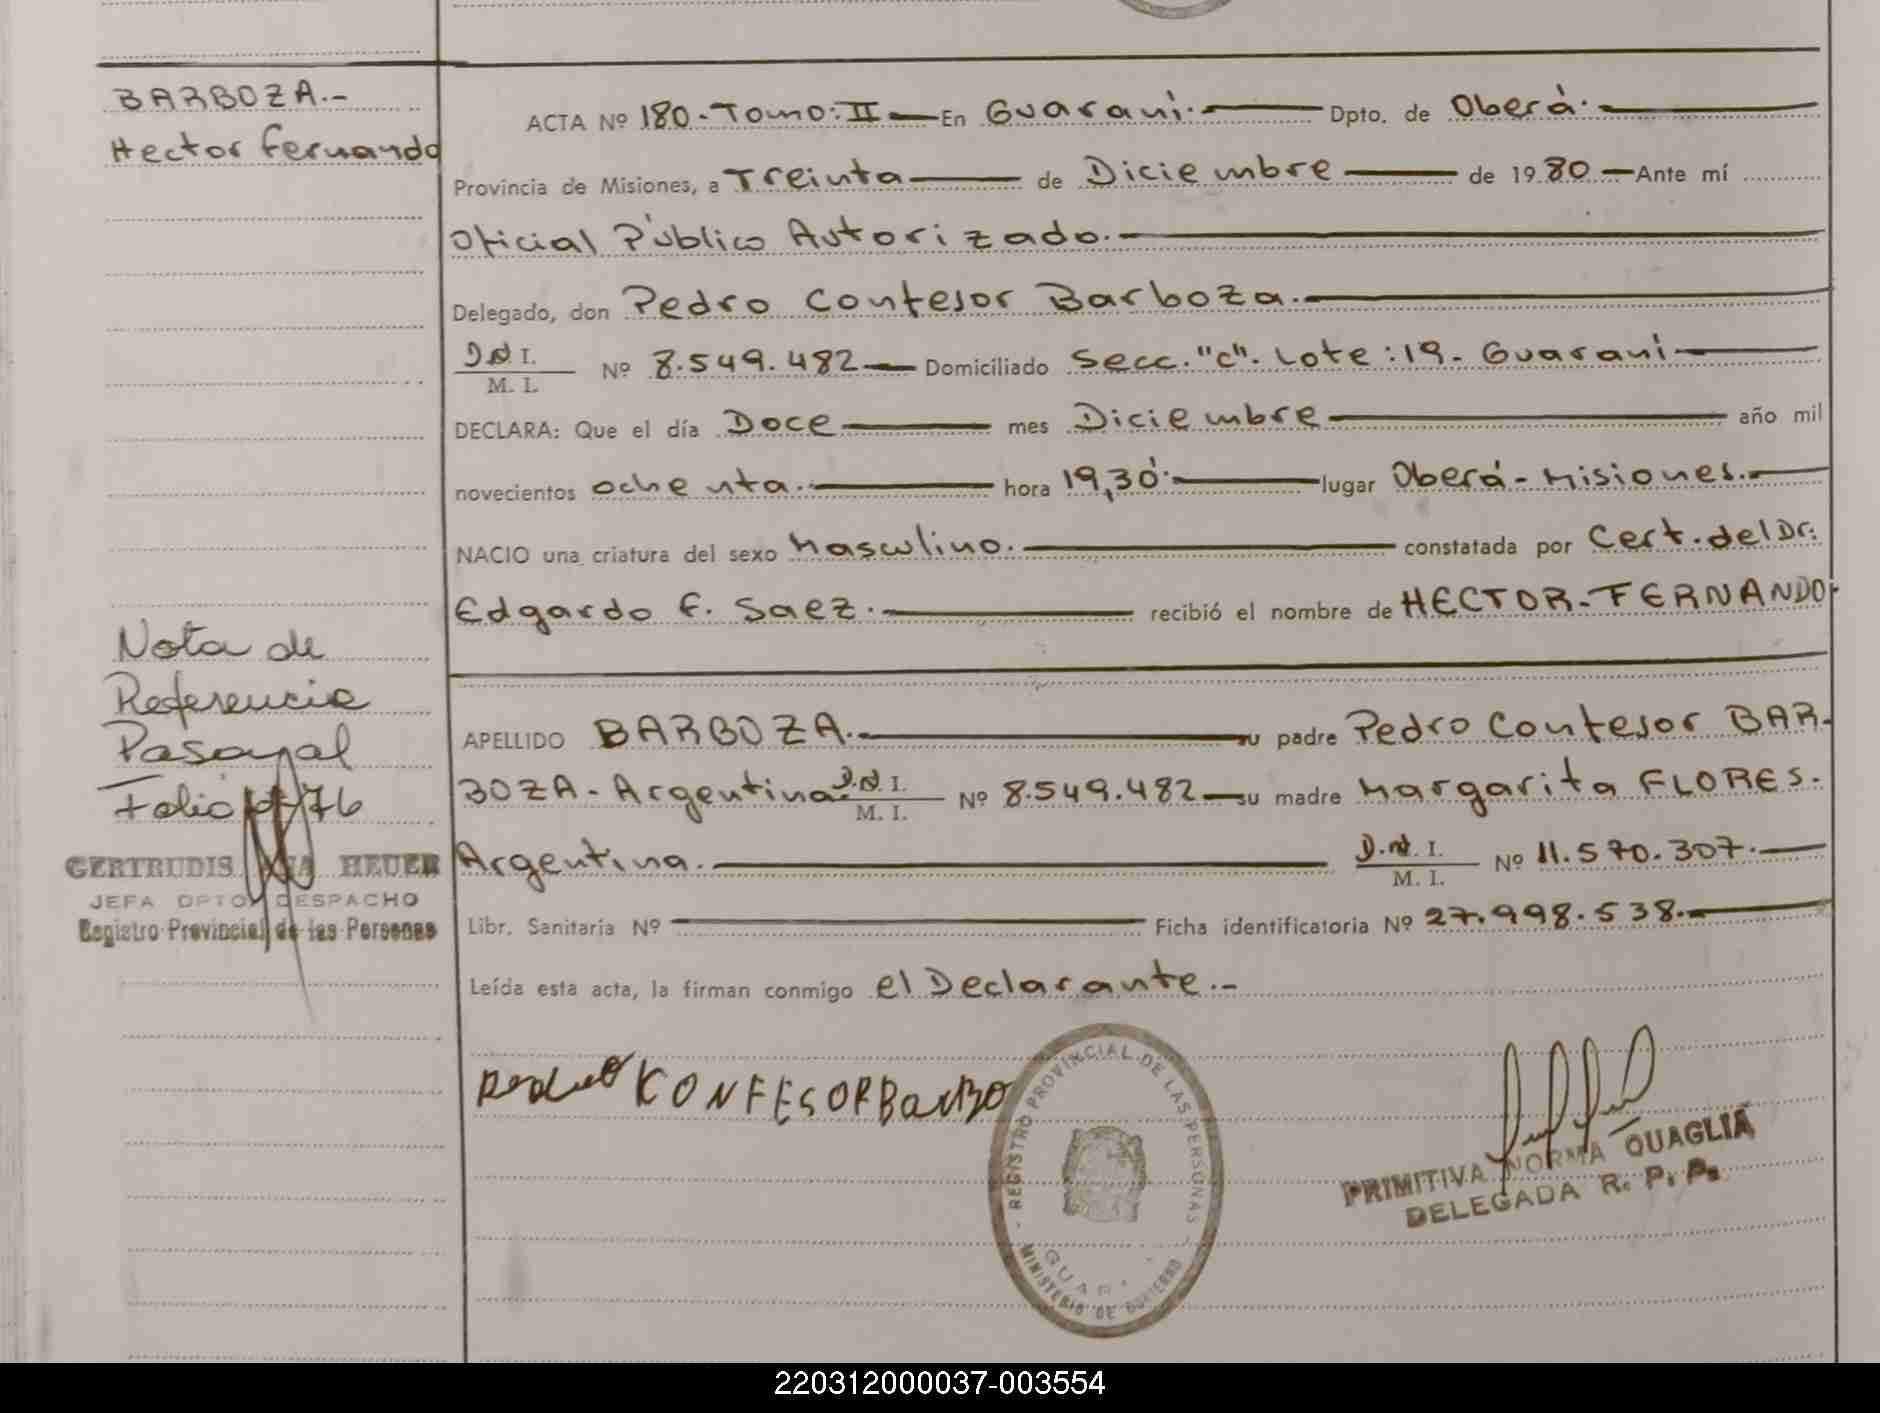 BARBOZA.-
Hector Fernando
ACTA Nº 180-Tomo: II — En Guaraní. Dpto. de Oberá.
Provincia de Misiones, a Treinta de Diciembre de 1980 — Ante mí
Oficial Público Autorizado.
Delegado, don Pedro Confesor Barboza.
D.N.I.
M. I.
Nº 8.549.482 — Domiciliado Secc. "C". Lote: 19. Guaraní
DECLARA: Que el día Doce mes Diciembre año mil
novecientos ochenta. hora 19,30'. lugar Oberá - Misiones.
NACIO una criatura del sexo Masculino. constatada por Cert. del Dr.
Edgardo F. Saez. recibió el nombre de HECTOR-FERNANDO.
APELLIDO BARBOZA. su padre Pedro Confesor BAR-
BOZA - Argentina. D.N.I.
M. I.
Nº 8.549.482 — su madre Margarita FLORES.
Argentina. D.N.I.
M. I.
Nº 11.570.307.
Libr. Sanitaria Nº Ficha identificatoria Nº 27.998.538.
Leída esta acta, la firman conmigo el Declarante.-
Nota de
Referencia
Folio 76
GERTRUDIS HEUER
JEFA DPTO DESPACHO
Registro Provincial de las Personas
Pedro KONFESOR Barbo
- REGISTRO PROVINCIAL DE LAS PERSONAS -
MINISTERIO DE GOBIERNO
PRIMITIVA NORMA QUAGLIA
DELEGADA R. P. P.
220312000037-003554